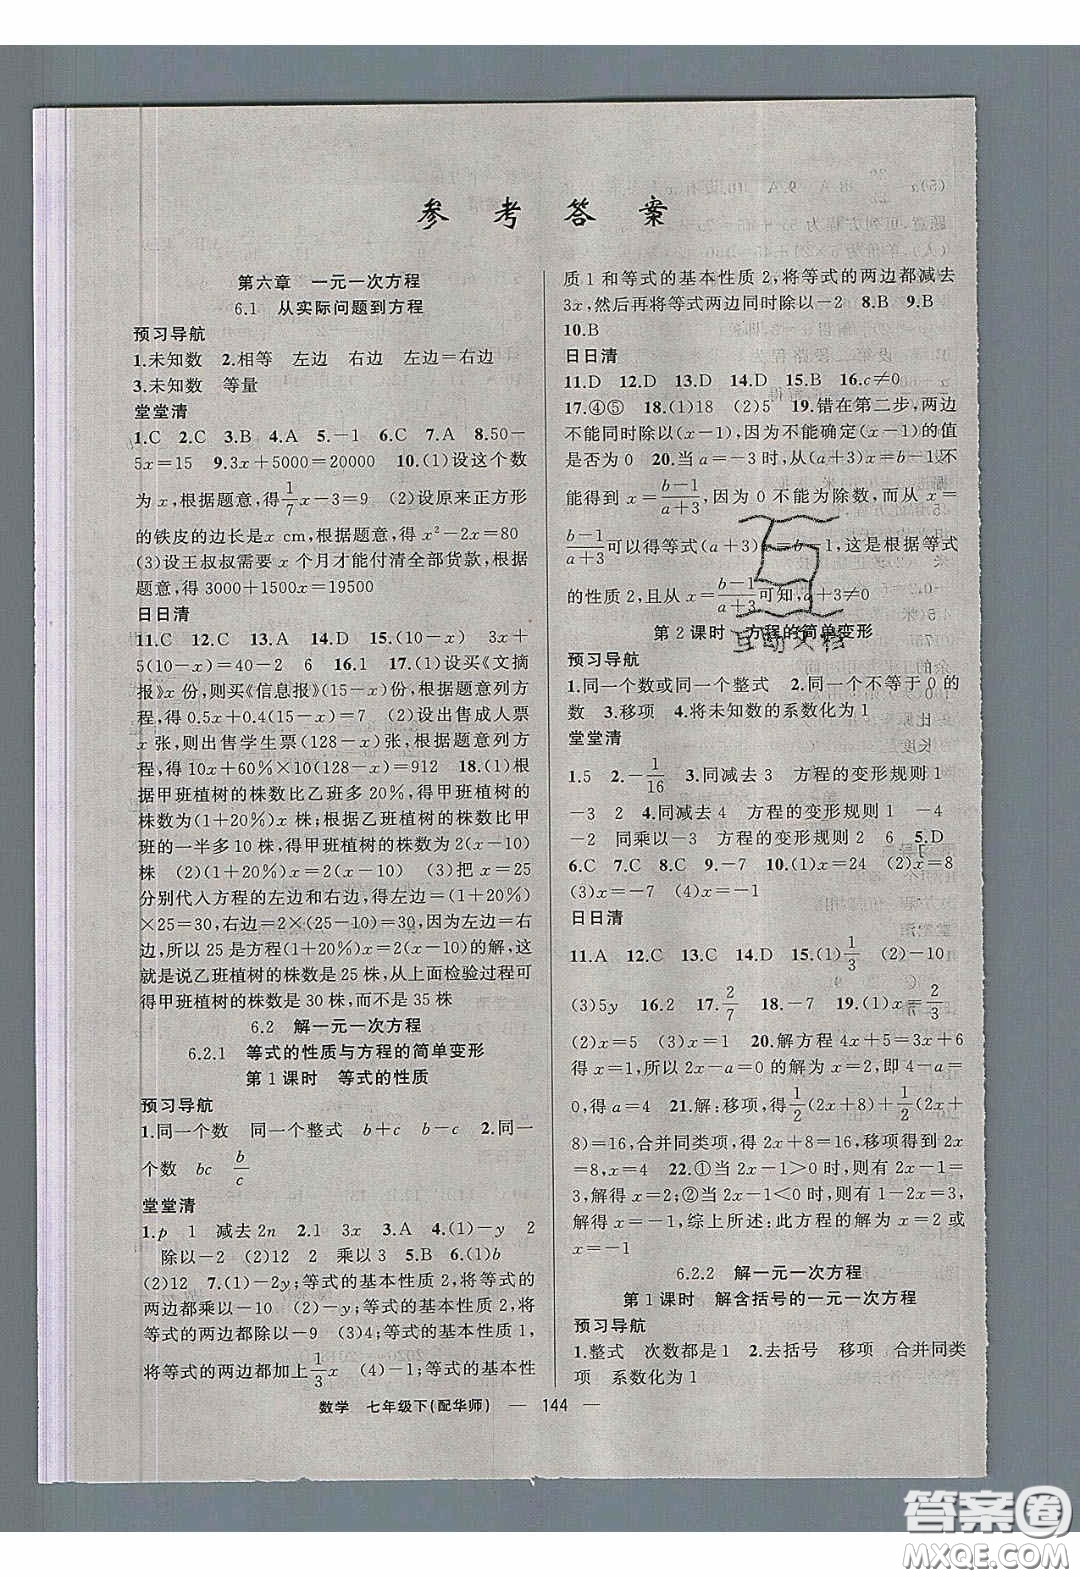 参考答案
第六章　一元一次方程
6.1　从实际问题到方程
预习导航
1.未知数　2.相等　左边　右边　左边=右边
3.未知数　等量
堂堂清
1.C　2.C　3.B　4.A　5.-1　6.C　7.A　8.50-
5x=15　9.3x+5000=20000　10.(1)设这个数
为x,根据题意,得1/7x-3=9　(2)设原来正方形
的铁皮的边长是x cm,根据题意,得 x²-2x=80
(3)设王叔叔需要 x 个月才能付清全部货款,根据
题意,得 3000+1500x=19500
日日清
11.C　12.C　13.A　14.D　15.(10-x)　3x+
+5(10-x)=40-2　6　16.1　17.(1)设买《文摘
报》x份,则买《信息报》(15-x)份,根据题意列方
程,得 0.5x+0.4(15-x)=7　(2)设出售成人票
x张,则出售学生票(128-x)张,根据题意列方
程,得 10x+60%×10(128-x)=912　18.(1)根
据甲班植树的株数比乙班多20%,得甲班植树的
株数为(1+20%)x 株;根据乙班植树的株数比甲
班的一半多10株,得甲班植树的株数为2(x-10)
株　(2)(1+20%)x=2(x-10)　(3)把 x=25
分别代入方程的左边和右边,得左边=(1+20%)
×25=30,右边=2×(25-10)=30,因为左边=右
边,所以25是方程(1+20%)x=2(x-10)的解,这
就是说乙班植树的株数是25株,从上面检验过程可
得甲班植树的株数是30株,而不是35株
6.2　解一元一次方程
6.2.1　等式的性质与方程的简单变形
第1课时　等式的性质
预习导航
1.同一个数　同一个整式　b+c　b-c　2.同一
个数　bc　b/c
堂堂清
1.p　1　减去2n　2.1　3x　3.A　4.(1)-y　2
除以-2　(2)12　2　乘以3　5.B　6.(1)b
(2)12　7.(1)-2y;等式的基本性质2,将等式的
两边都乘以-10　(2)-y;等式的基本性质2,将
等式的两边都除以-9　(3)4;等式的基本性质1,
将等式的两边都加上1/3x　(4)-1;等式的基本性
质1和等式的基本性质2,将等式的两边都减去
3x,然后再将等式两边同时除以-2　8.B　9.B
10.B
日日清
11.D　12.D　13.D　14.D　15.B　16.c≠0
17.④⑤　18.(1)18　(2)5　19.错在第二步,两边
不能同时除以(x-1),因为不能确定(x-1)的值
是否为0　20.当a=-3时,从(a+3)x=b-1不
能得到x=(b-1)/(a+3),因为0不能为除数,而从x=
(b-1)/(a+3)可以得等式(a+3)x=b-1,这是根据等式
的性质2,且从x=(b-1)/(a+3)可知,a+3≠0
第2课时　方程的简单变形
预习导航
1.同一个数或同一个整式　2.同一个不等于0的
数　3.移项　4.将未知数的系数化为1
堂堂清
1.5　2.-1/16　3.同减去3　方程的变形规则1
-3　2　4.同减去4　方程的变形规则1　-4
-2　同乘以-3　方程的变形规则2　6　5.D
6.C　7.C　8.C　9.-2　10.(1)x=24　(2)x=8
(3)x=-7　(4)x=-1
日日清
11.A　12.C　13.C　14.D　15.(1)1/3　(2)-10
(3)5y　16.2　17.2/7　18.-7　19.(1)x=2/3
(2)x=5　(3)x=1　20.解方程 4x+5=3x+
6,得x=1,所以 2x-a=0的解为x=2,即4-a=
0,得a=4　21.解:移项,得1/2(2x+8)+1/2(2x+
8)=16,合并同类项,得2x+8=16,移项得到2x
=8,x=4　22.①当2x-1>0时,则有2x-1=
3,解得x=2;②当2x-1<0时,则有2x-1=-3,
解得 x=-1,综上所述:此方程的解为x=2或
x=-1
6.2.2　解一元一次方程
第1课时　解含括号的一元一次方程
预习导航
1.整式　次数都是1　2.去括号　移项　合并同类
项　系数化为1
数学　七年级下(配华师)　— 144 —
互动文档
答案圈
MXQE.COM